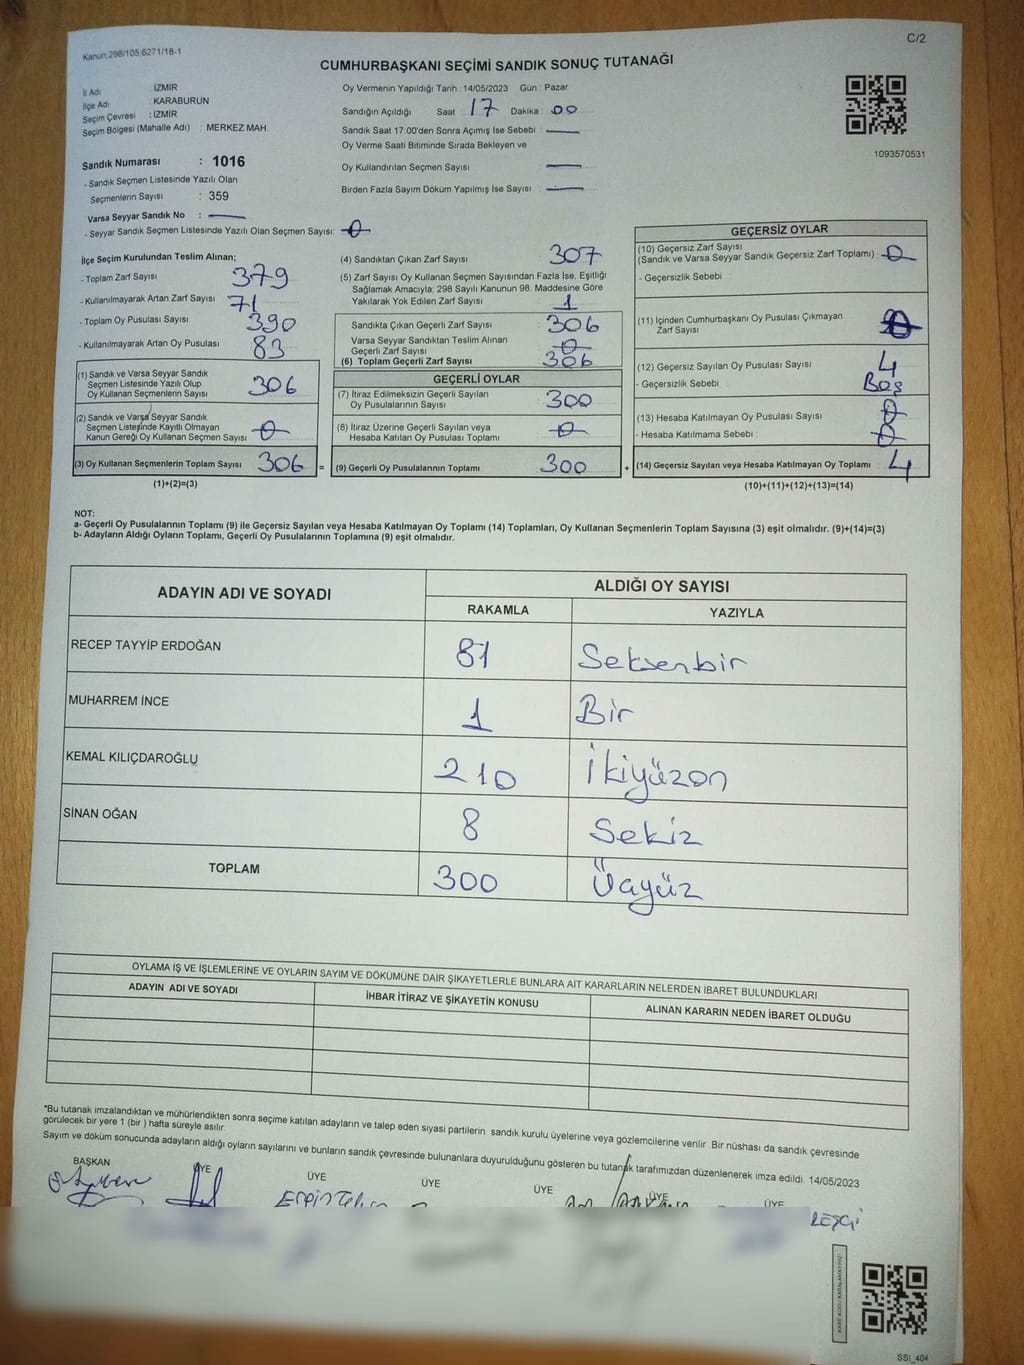 Kanun:298/105,6271/18-1
C/2
CUMHURBAŞKANI SEÇİMİ SANDIK SONUÇ TUTANAĞI
İl Adı İZMİR
İlçe Adı KARABURUN
Seçim Çevresi : İZMİR
Seçim Bölgesi (Mahalle Adı) : MERKEZ MAH.
Sandık Numarası : 1016
- Sandık Seçmen Listesinde Yazılı Olan
Seçmenlerin Sayısı : 359
Varsa Seyyar Sandık No :
- Seyyar Sandık Seçmen Listesinde Yazılı Olan Seçmen Sayısı: 0
Oy Vermenin Yapıldığı Tarih : 14/05/2023 Gün : Pazar
Sandığın Açıldığı Saat 17 Dakika : 00
Sandık Saat 17:00'den Sonra Açımış İse Sebebi :
Oy Verme Saati Bitiminde Sırada Bekleyen ve
Oy Kullandırılan Seçmen Sayısı
Birden Fazla Sayım Döküm Yapılmış İse Sayısı :
1093570531
İlçe Seçim Kurulundan Teslim Alınan;
- Toplam Zarf Sayısı 379
- Kullanılmayarak Artan Zarf Sayısı 71
- Toplam Oy Pusulası Sayısı 390
- Kullanılmayarak Artan Oy Pusulası 83
(1) Sandık ve Varsa Seyyar Sandık
Seçmen Listesinde Yazılı Olup
Oy Kullanan Seçmenlerin Sayısı 306
(2) Sandık ve Varsa Seyyar Sandık
Seçmen Listesinde Kayıtlı Olmayan
Kanun Gereği Oy Kullanan Seçmen Sayısı 0
(3) Oy Kullanan Seçmenlerin Toplam Sayısı 306 =
(1)+(2)=(3)
(4) Sandıktan Çıkan Zarf Sayısı 307
(5) Zarf Sayısı Oy Kullanan Seçmen Sayısından Fazla İse, Eşitliği
Sağlamak Amacıyla; 298 Sayılı Kanunun 98. Maddesine Göre
Yakılarak Yok Edilen Zarf Sayısı 1
Sandıkta Çıkan Geçerli Zarf Sayısı 306
Varsa Seyyar Sandıktan Teslim Alınan
Geçerli Zarf Sayısı 0
(6) Toplam Geçerli Zarf Sayısı 306
GEÇERLİ OYLAR
(7) İtiraz Edilmeksizin Geçerli Sayılan
Oy Pusulalarının Sayısı 300
(8) İtiraz Üzerine Geçerli Sayılan veya
Hesaba Katılan Oy Pusulası Toplamı 0
(9) Geçerli Oy Pusulalarının Toplamı 300 +
GEÇERSİZ OYLAR
(10) Geçersiz Zarf Sayısı
(Sandık ve Varsa Seyyar Sandık Geçersiz Zarf Toplamı) 0
- Geçersizlik Sebebi :
(11) İçinden Cumhurbaşkanı Oy Pusulası Çıkmayan
Zarf Sayısı 0
(12) Geçersiz Sayılan Oy Pusulası Sayısı 4
- Geçersizlik Sebebi Boş
(13) Hesaba Katılmayan Oy Pusulası Sayısı 0
- Hesaba Katılmama Sebebi : 0
(14) Geçersiz Sayılan veya Hesaba Katılmayan Oy Toplamı 4
(10)+(11)+(12)+(13)=(14)
NOT:
a- Geçerli Oy Pusulalarının Toplamı (9) ile Geçersiz Sayılan veya Hesaba Katılmayan Oy Toplamı (14) Toplamları, Oy Kullanan Seçmenlerin Toplam Sayısına (3) eşit olmalıdır. (9)+(14)=(3)
b- Adayların Aldığı Oyların Toplamı, Geçerli Oy Pusulalarının Toplamına (9) eşit olmalıdır.
ADAYIN ADI VE SOYADI ALDIĞI OY SAYISI
RAKAMLA YAZIYLA
RECEP TAYYİP ERDOĞAN 81 Seksenbir
MUHARREM İNCE 1 Bir
KEMAL KILIÇDAROĞLU 210 İkiyüzon
SİNAN OĞAN 8 Sekiz
TOPLAM 300 Üçyüz
OYLAMA İŞ VE İŞLEMLERİNE VE OYLARIN SAYIM VE DÖKÜMÜNE DAİR ŞİKAYETLERLE BUNLARA AİT KARARLARIN NELERDEN İBARET BULUNDUKLARI
ADAYIN ADI VE SOYADI İHBAR İTİRAZ VE ŞİKAYETİN KONUSU ALINAN KARARIN NEDEN İBARET OLDUĞU
*Bu tutanak imzalandıktan ve mühürlendikten sonra seçime katılan adayların ve talep eden siyasi partilerin sandık kurulu üyelerine veya gözlemcilerine verilir. Bir nüshası da sandık çevresinde
görülecek bir yere 1 (bir ) hafta süreyle asılır.
Sayım ve döküm sonucunda adayların aldığı oyların sayılarını ve bunların sandık çevresinde bulunanlara duyurulduğunu gösteren bu tutanak tarafımızdan düzenlenerek imza edildi. 14/05/2023
BAŞKAN ÜYE ÜYE ÜYE ÜYE ÜYE ÜYE
SSİ_404